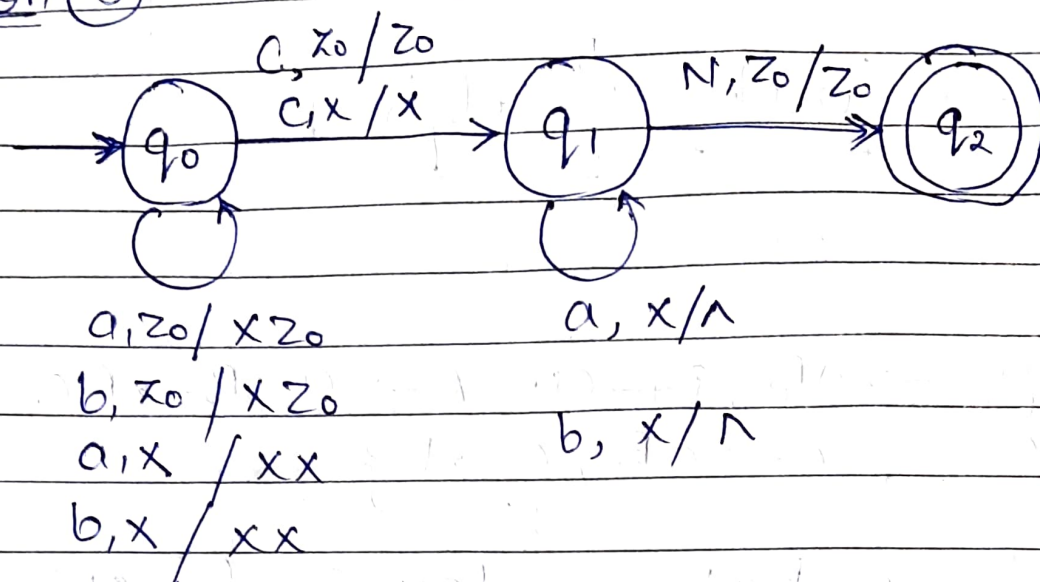 C, Z0 / Z0
C, X / X
N, Z0 / Z0
q0
q1
q2
a, Z0 / X Z0
b, Z0 / X Z0
a, X / X X
b, X / X X
a, X / ʌ
b, X / ʌ